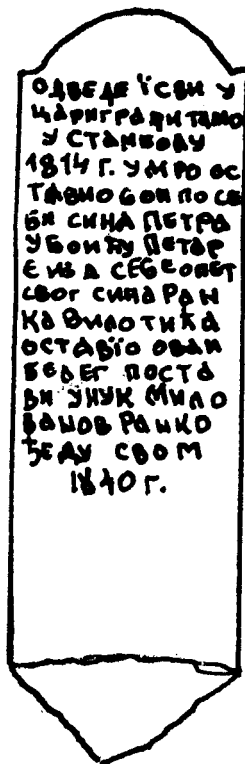 ОДВЕДЕ ЇСВИ У
ЦАРИГРАДИ ТАМО
У СТАМБОЛУ
1814 Г. УМРО ОС
ТАВИО ВОИ ПО СЕ
БИ СИНА ПЕТРА
У БОИКУ ПЕТАР
Є ИЗ А СЕБЕ ОПЕТ
СВОГ СИНА РАН
КА ВИЛОТИЋА
ОСТАВЇО ОВАИ
БЕЛЕГ ПОСТА
ВИ УНУК МИЛО
ВАНОВ РАНКО
ЂЕДУ СВОМ
1840 Г.